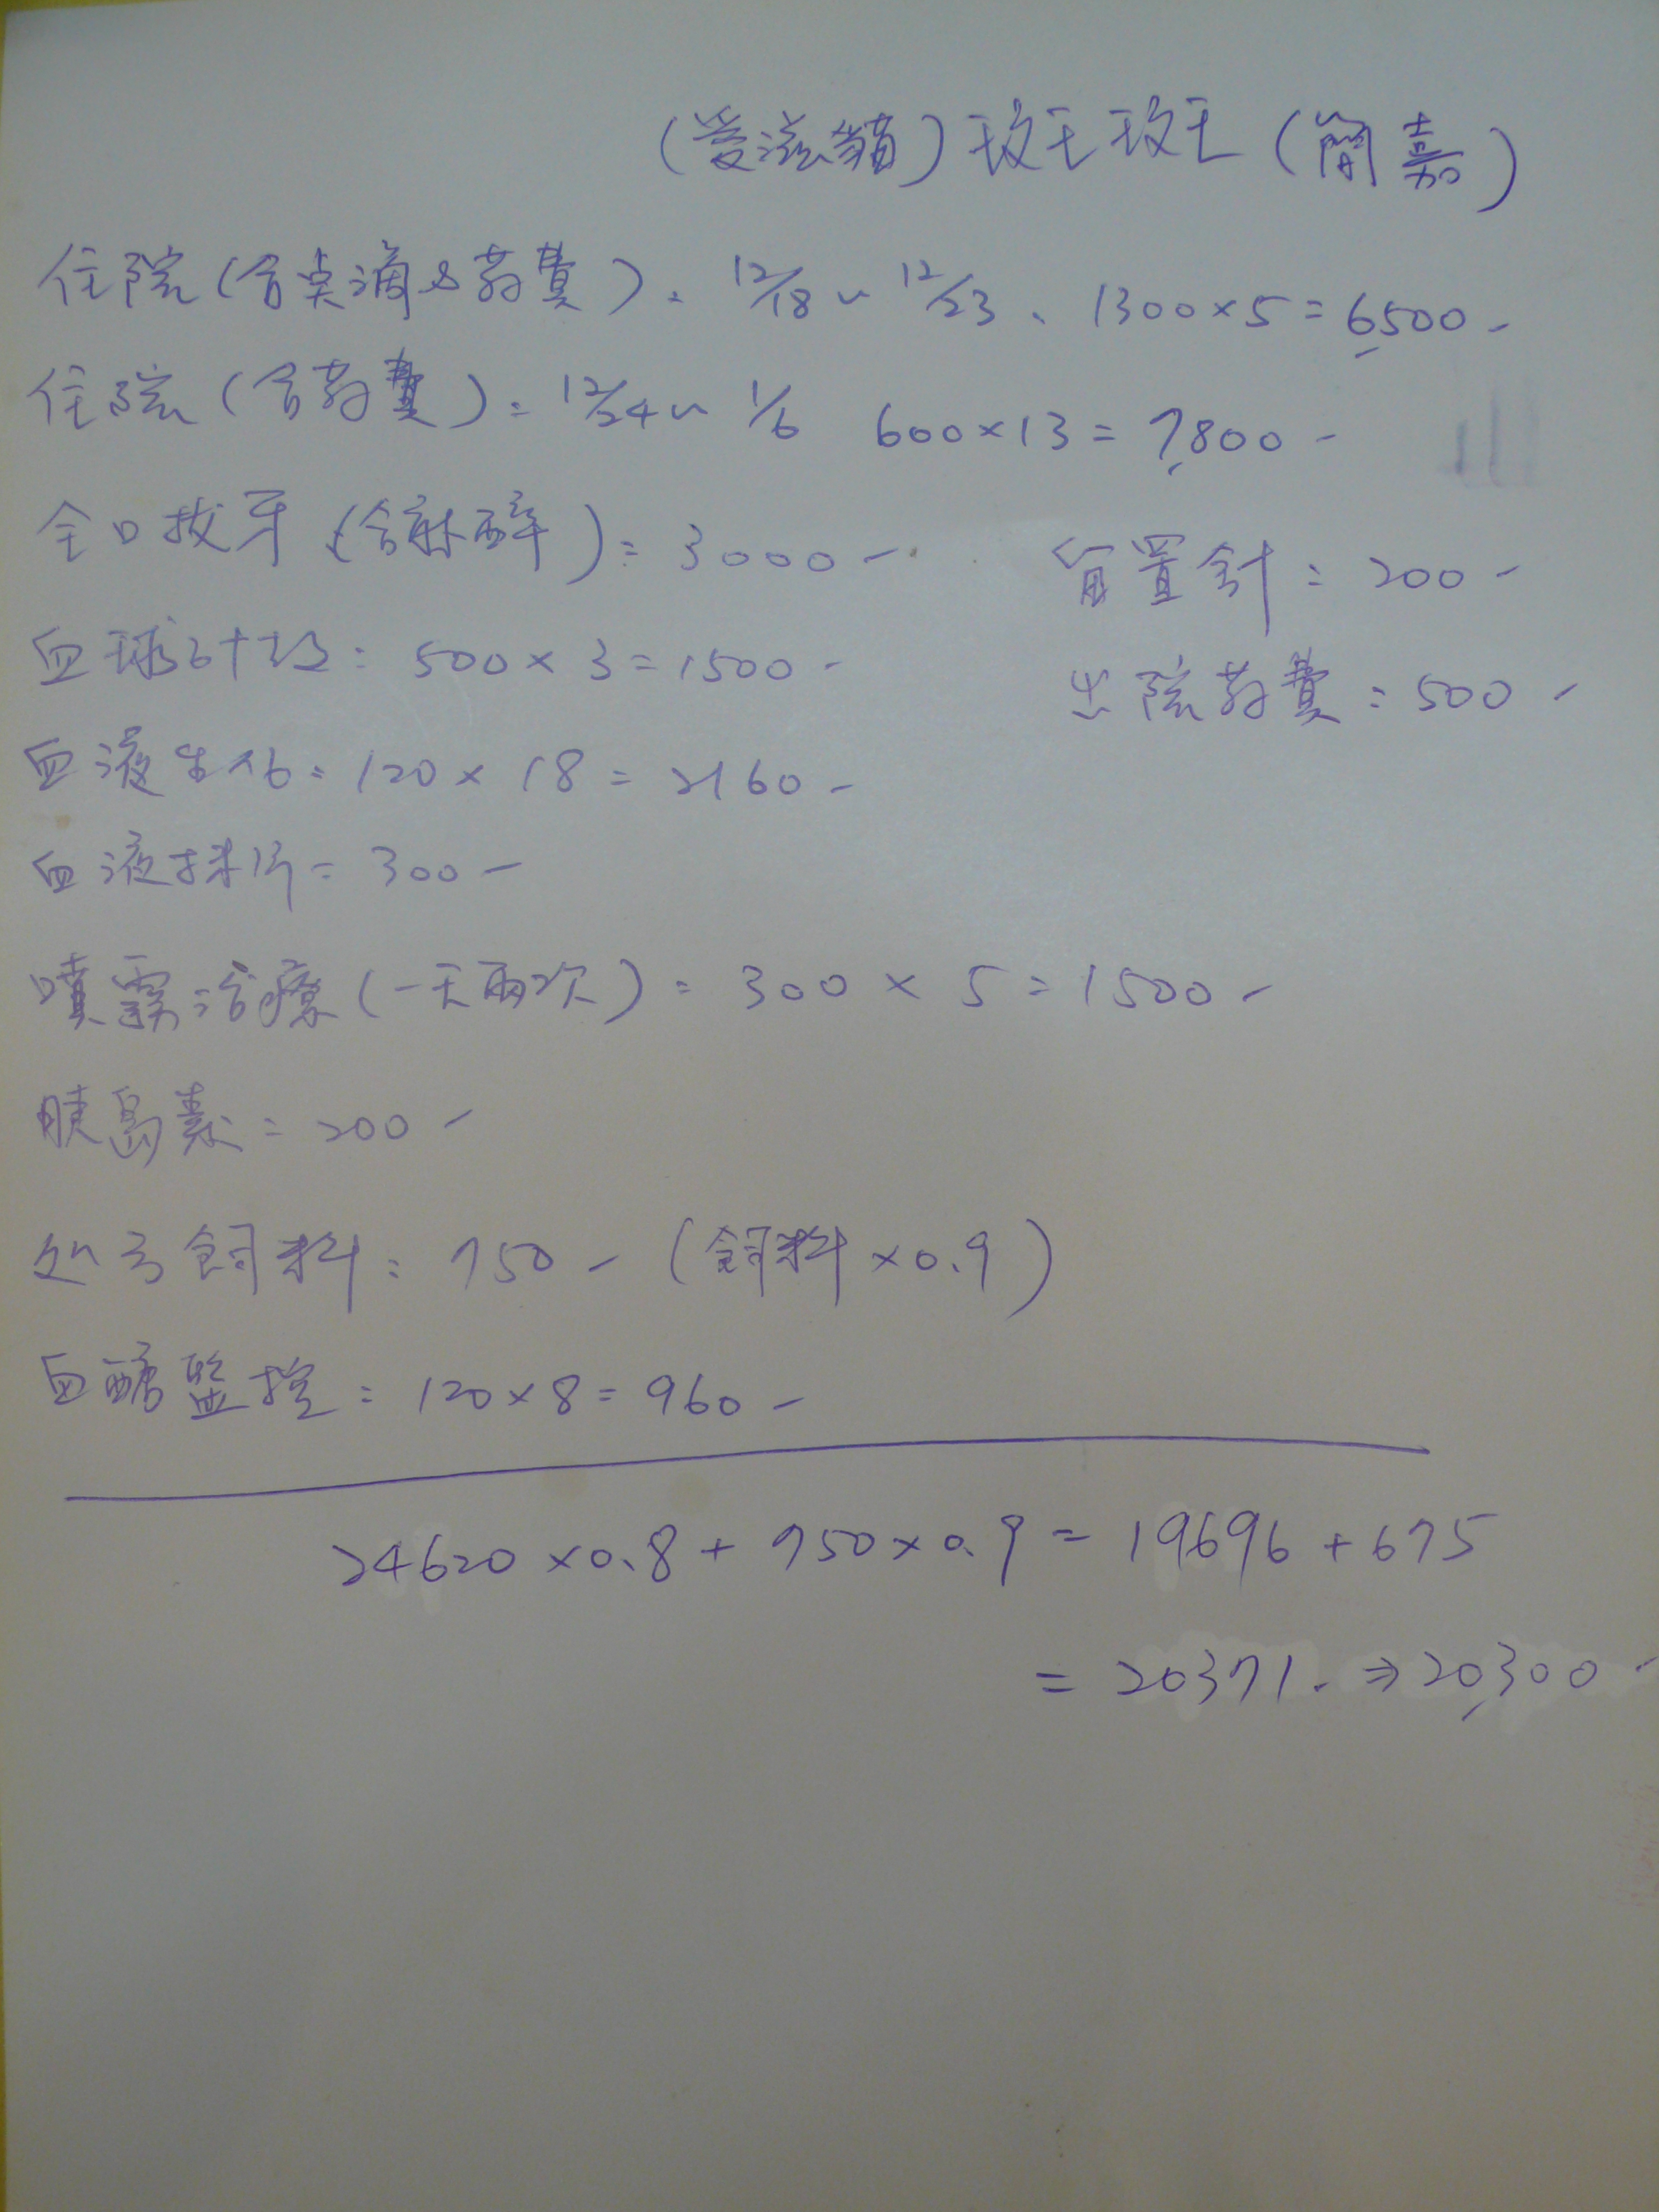 (愛滋貓) 斑斑 (簡嘉)
住院(含点滴&葯費): 12/18~12/23、1300×5=6,500-
住院(含葯費): 12/24~1/6 600×13=7,800-
全口拔牙(含麻醉): 3000-
留置針: 200-
血球計数: 500×3=1500-
出院葯費: 500-
血液生化: 120×18=2160-
血液抹片: 300-
噴霧治療(一天兩次): 300×5=1500-
胰島素: 200-
処方飼料: 750-(飼料×0.9)
血糖監控: 120×8=960-
24620×0.8+750×0.9=19696+675
=20371.⇒20,300-